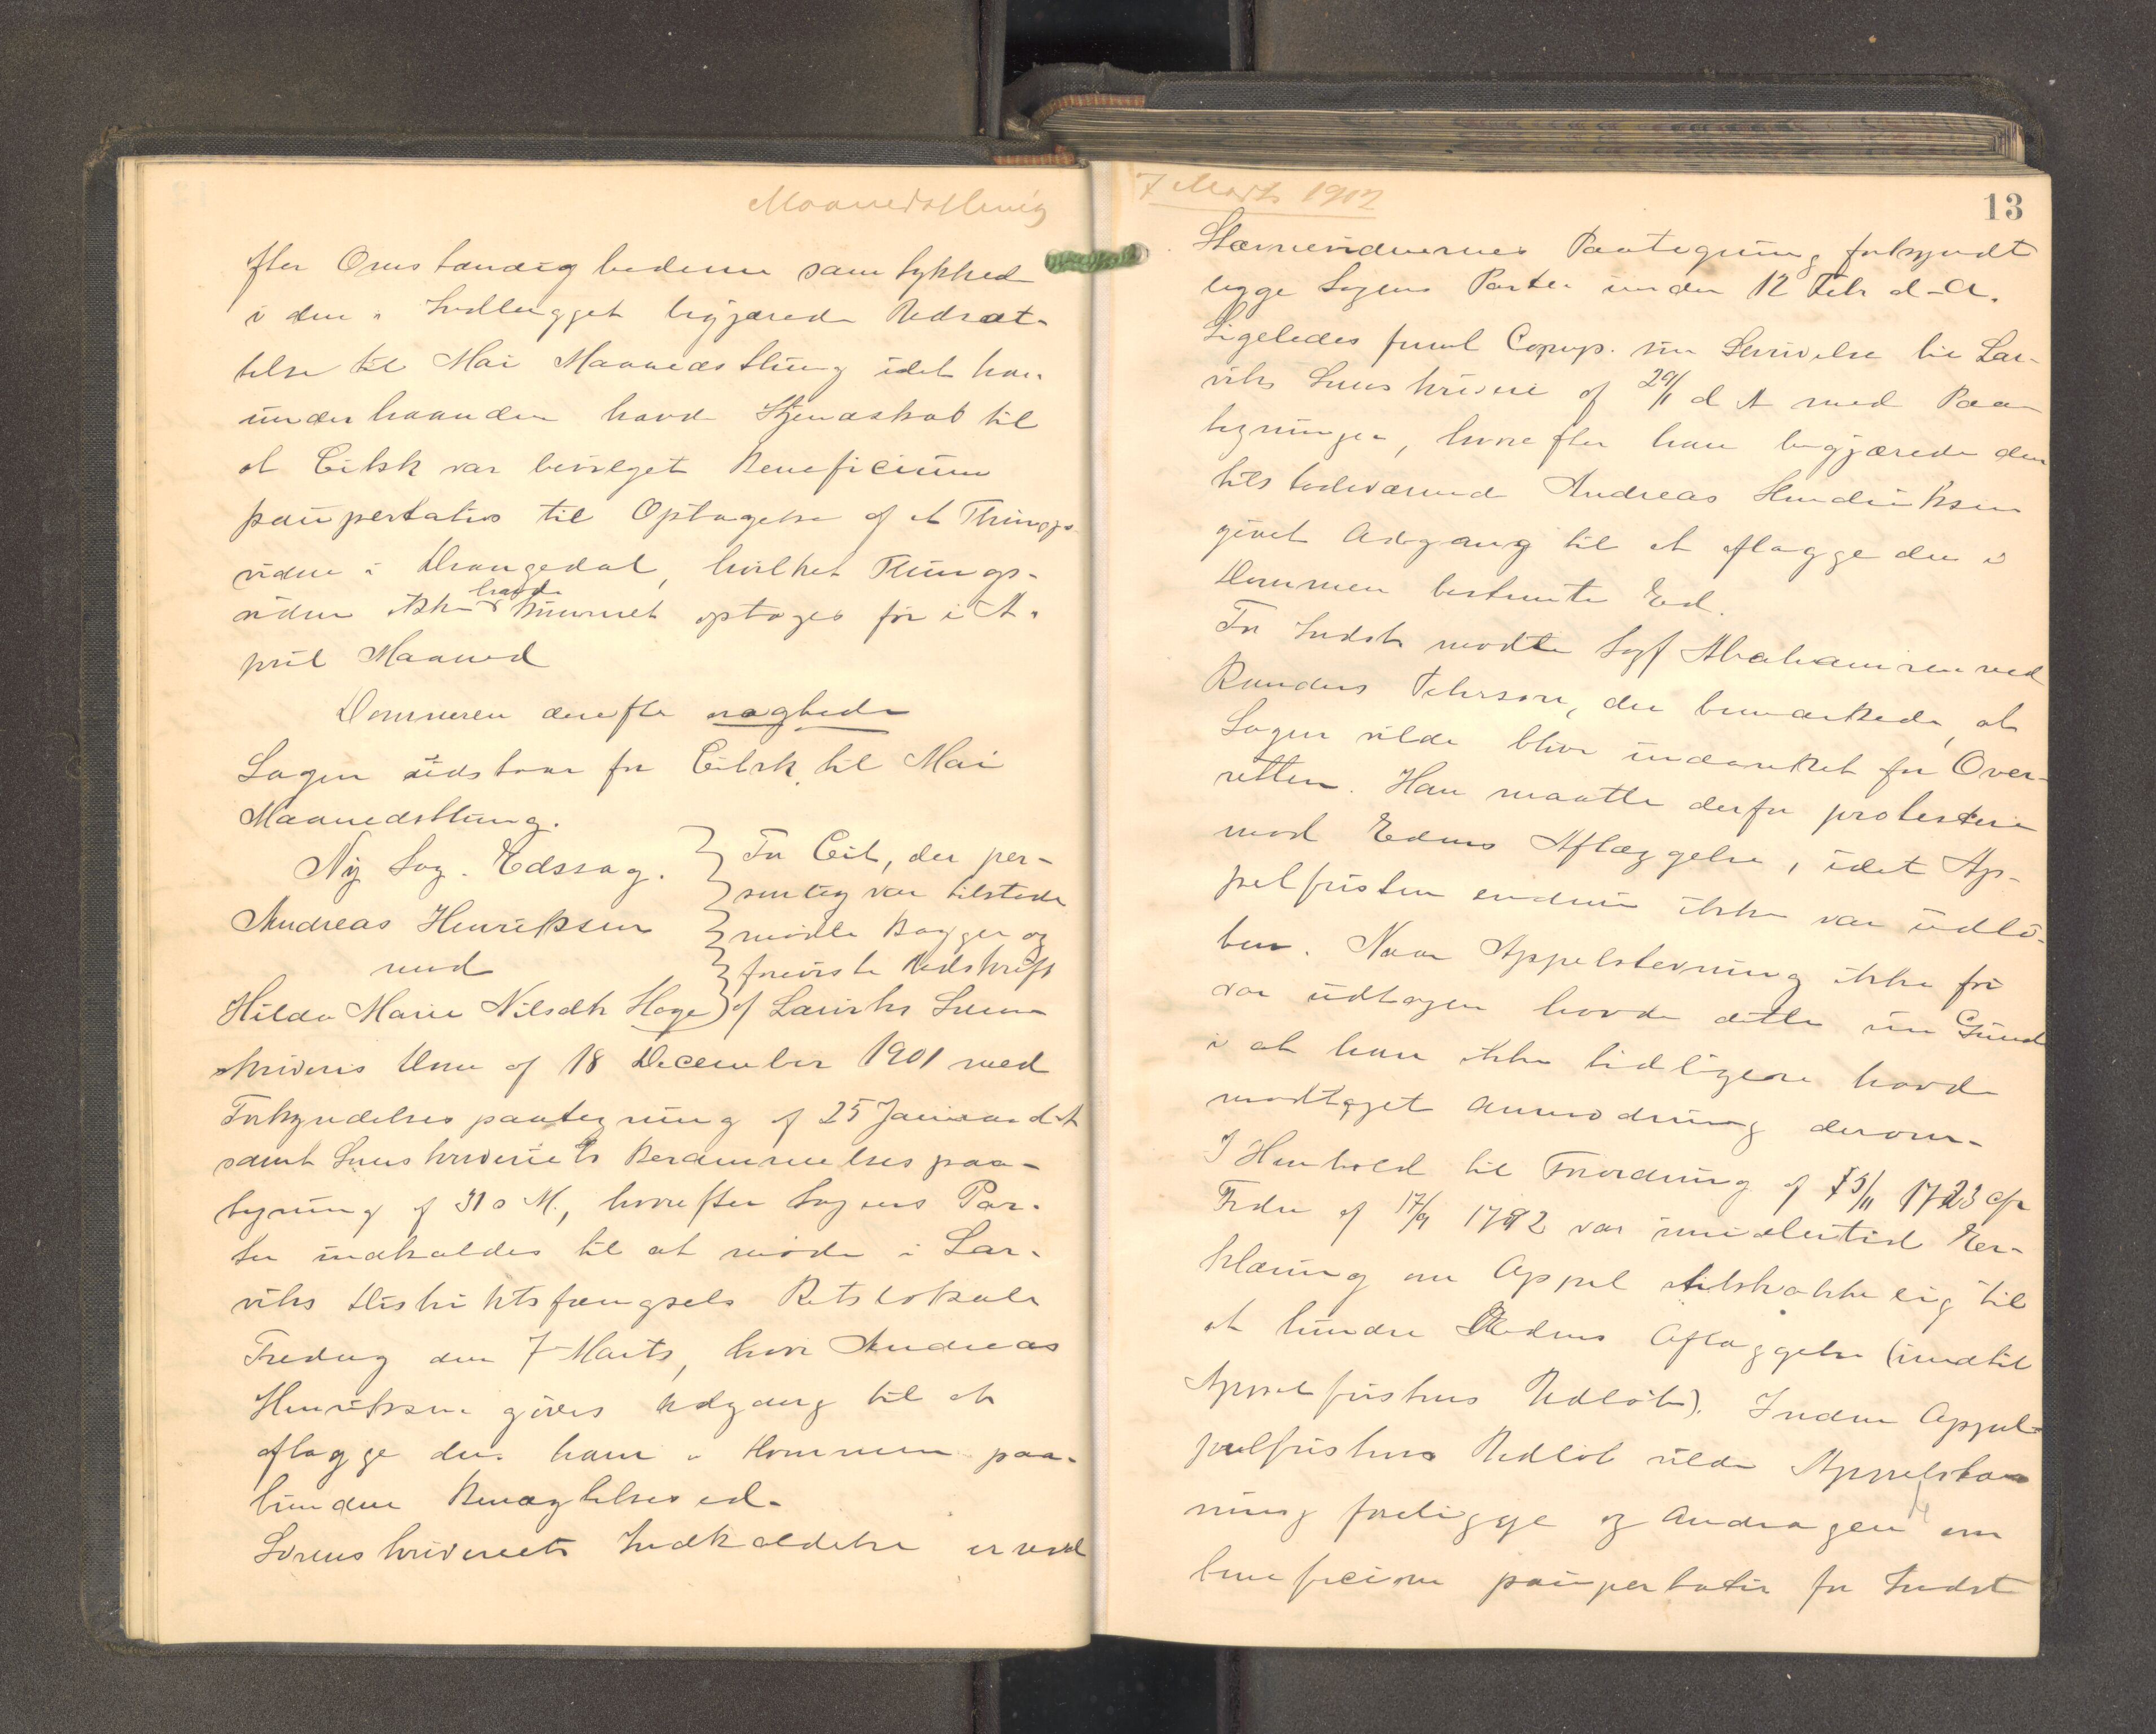 Maanedsthing
fter Omstændighederne samtykked
i den i Indlægget begjærede Udsæt-
telse til Mai Maanedsthing idet han
underhaanden havde Kjendskab til
at Citsk var bevilget Beneficium
paupertatis til Optagelse af et Things-
vidne i Drangedal, hvilket Things-
vidne ikke havde kunnet optages før i A-
pril Maaned
Dommeren derefter nægtede
Sagen udstaar for Citsk. til Mai
Maanedsthing.
Ny Sag. Edssag.
Andreas Henriksen
mod
Hilda Marie Nilsdtr Hage
For Cit, der per-
sonlig var tilstede
mødte Bagger og
freviste Udskrift
af Larviks Soren-
skriveris Dom af 18 December 1901 med
Forkyndelsespaategning af 25 Januar d A
samt Sorenskriveriets Berammelsespaa-
tegning af 31 s M., hvorefter Sagens Par-
ter indkaldes til at møde i Lar-
viks Distriktsfængsels Retslokale
Fredag den 7 Marts, hvor Andreas
Henriksen gives Adgang til at
aflægge den ham i Dommen paa-
bundne Benægtelsesed.
Sorenskriveriets Indkaldelse er ved
7 Marts 1902
13
Stævnevidnernes Paategning forkyndt
begge Sagens Parter under 12 Febr d. A.
Ligeledes freml Comp. sin Skrivelse til Lar-
viks Sorenskriveri af 29/1 d A med Paa-
tegninger, hvorefter han begjærede den
tilstedeværende Andreas Hendriksen
givet Adgang til at aflægge den i
Dommen bestemte Ed.
For Indst. mødte Sagf Abrahamsen ved
Randers Pehrson, der bemærkede, at
Sagen vilde blive indanket for Over-
retten. Han maatte derfor protestere
mod Edens Aflæggelse, idet Ap-
pelfristen endnu ikke var udlø-
ben. Naar Appelstevning ikke før
var udtagen havde dette sin Grund
i at han ikke tidligere havde
modtaget Anmodning derom.
I Henhold til Forordning af 19/11 1723 cfr
Frdn af 17/9 1792 var imidlertid Er-
klæring om Appel tilstrækkelig til
at hindre Edens Aflæggelse (indtil
Appelfristens Udløb). Inden Appel-
pelfristens Udløb vilde Appelstæv
ning foreligge og Andragende om
beneficium paupertatis for Indst